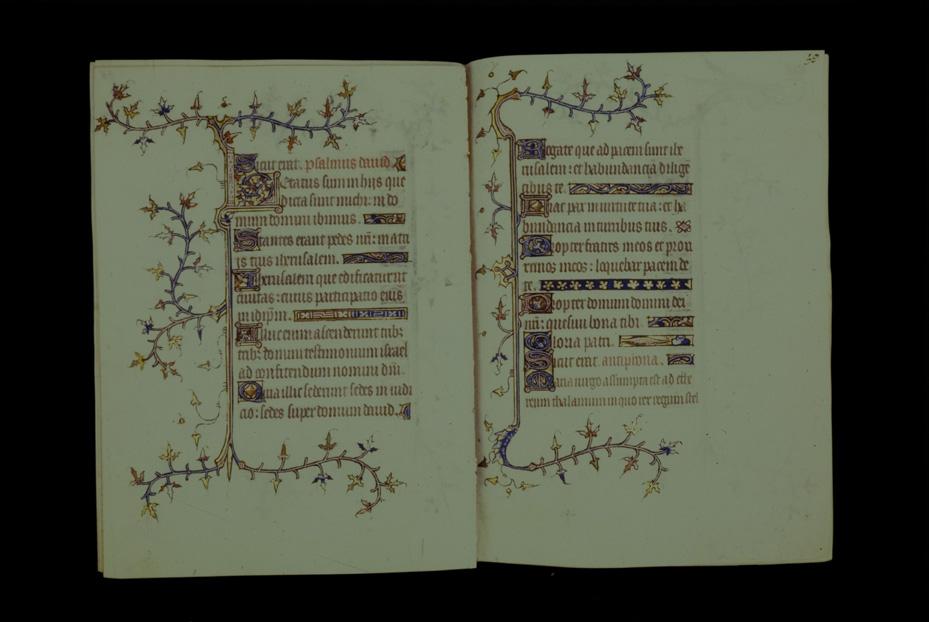 Sicut erat. psalmus david.
Letatus sum in hijs que
dicta sunt michi: in do
mum domini ibimus.
Stantes erant pedes nri: in atri
is tuis iherusalem.
Iherusalem que edificatur ut
civitas: cuius participatio eius
in idipm.
Illuc enim ascenderunt tribz
tribz domini testimonium israel
ad confitendum nomini dni.
Quia illic sederunt sedes in iudi
cio: sedes super domum david.
Rogate que ad pacem sunt ihe
rusalem: et habundancia dilige
tibus te.
Fiat pax in virtute tua: et ha
bundancia in turribus tuis.
Propter fratres meos et prox
imos meos: loquebar pacem de
te.
Propter domum domini dei
nri: quesivi bona tibi.
Gloria patri.
Sicut erat. antiphona.
Maria virgo assumpta est ad ethe
reum thalamum in quo rex regum stel